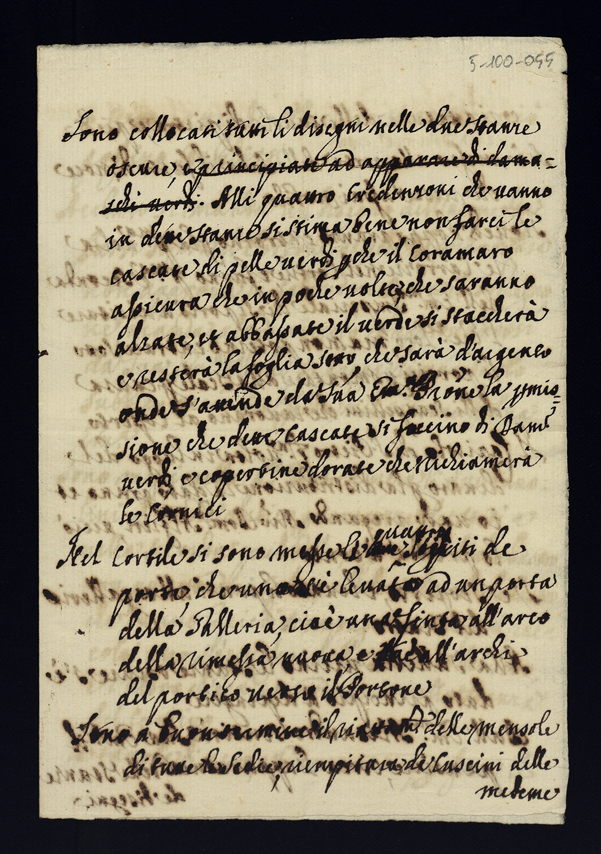 5-100-055
Sono collocati tutti li disegni nelle due stanze
oscure, e principiate ad apparare di dama=
schi verdi. Alli quattro Credenzoni che vanno
in dette stanze si stima bene non farci le
cascate di pelle verdi pche il Coramaro
assicura che in poche volte, che saranno
alzate, et abbassate il verde si staccherà
e resterà la foglia sotto che sarà d'argento
onde s'attende da Sua Em.za Prone la pmis=
sione che dette Cascate si faccino di Dam.
verdi e copertine dorate che richiamerà
le Cornici
Nel Cortile si sono messe li quattro de
porta, che uno si è levato ad un porta
della Galleria, cioè una finta all'arco
della rimessa nuova, e all'archi
del portico verso il Portone
Sono a buon termine il delle mensole
di tutte le Sedie, riempitura de Cuscini delle
medeme